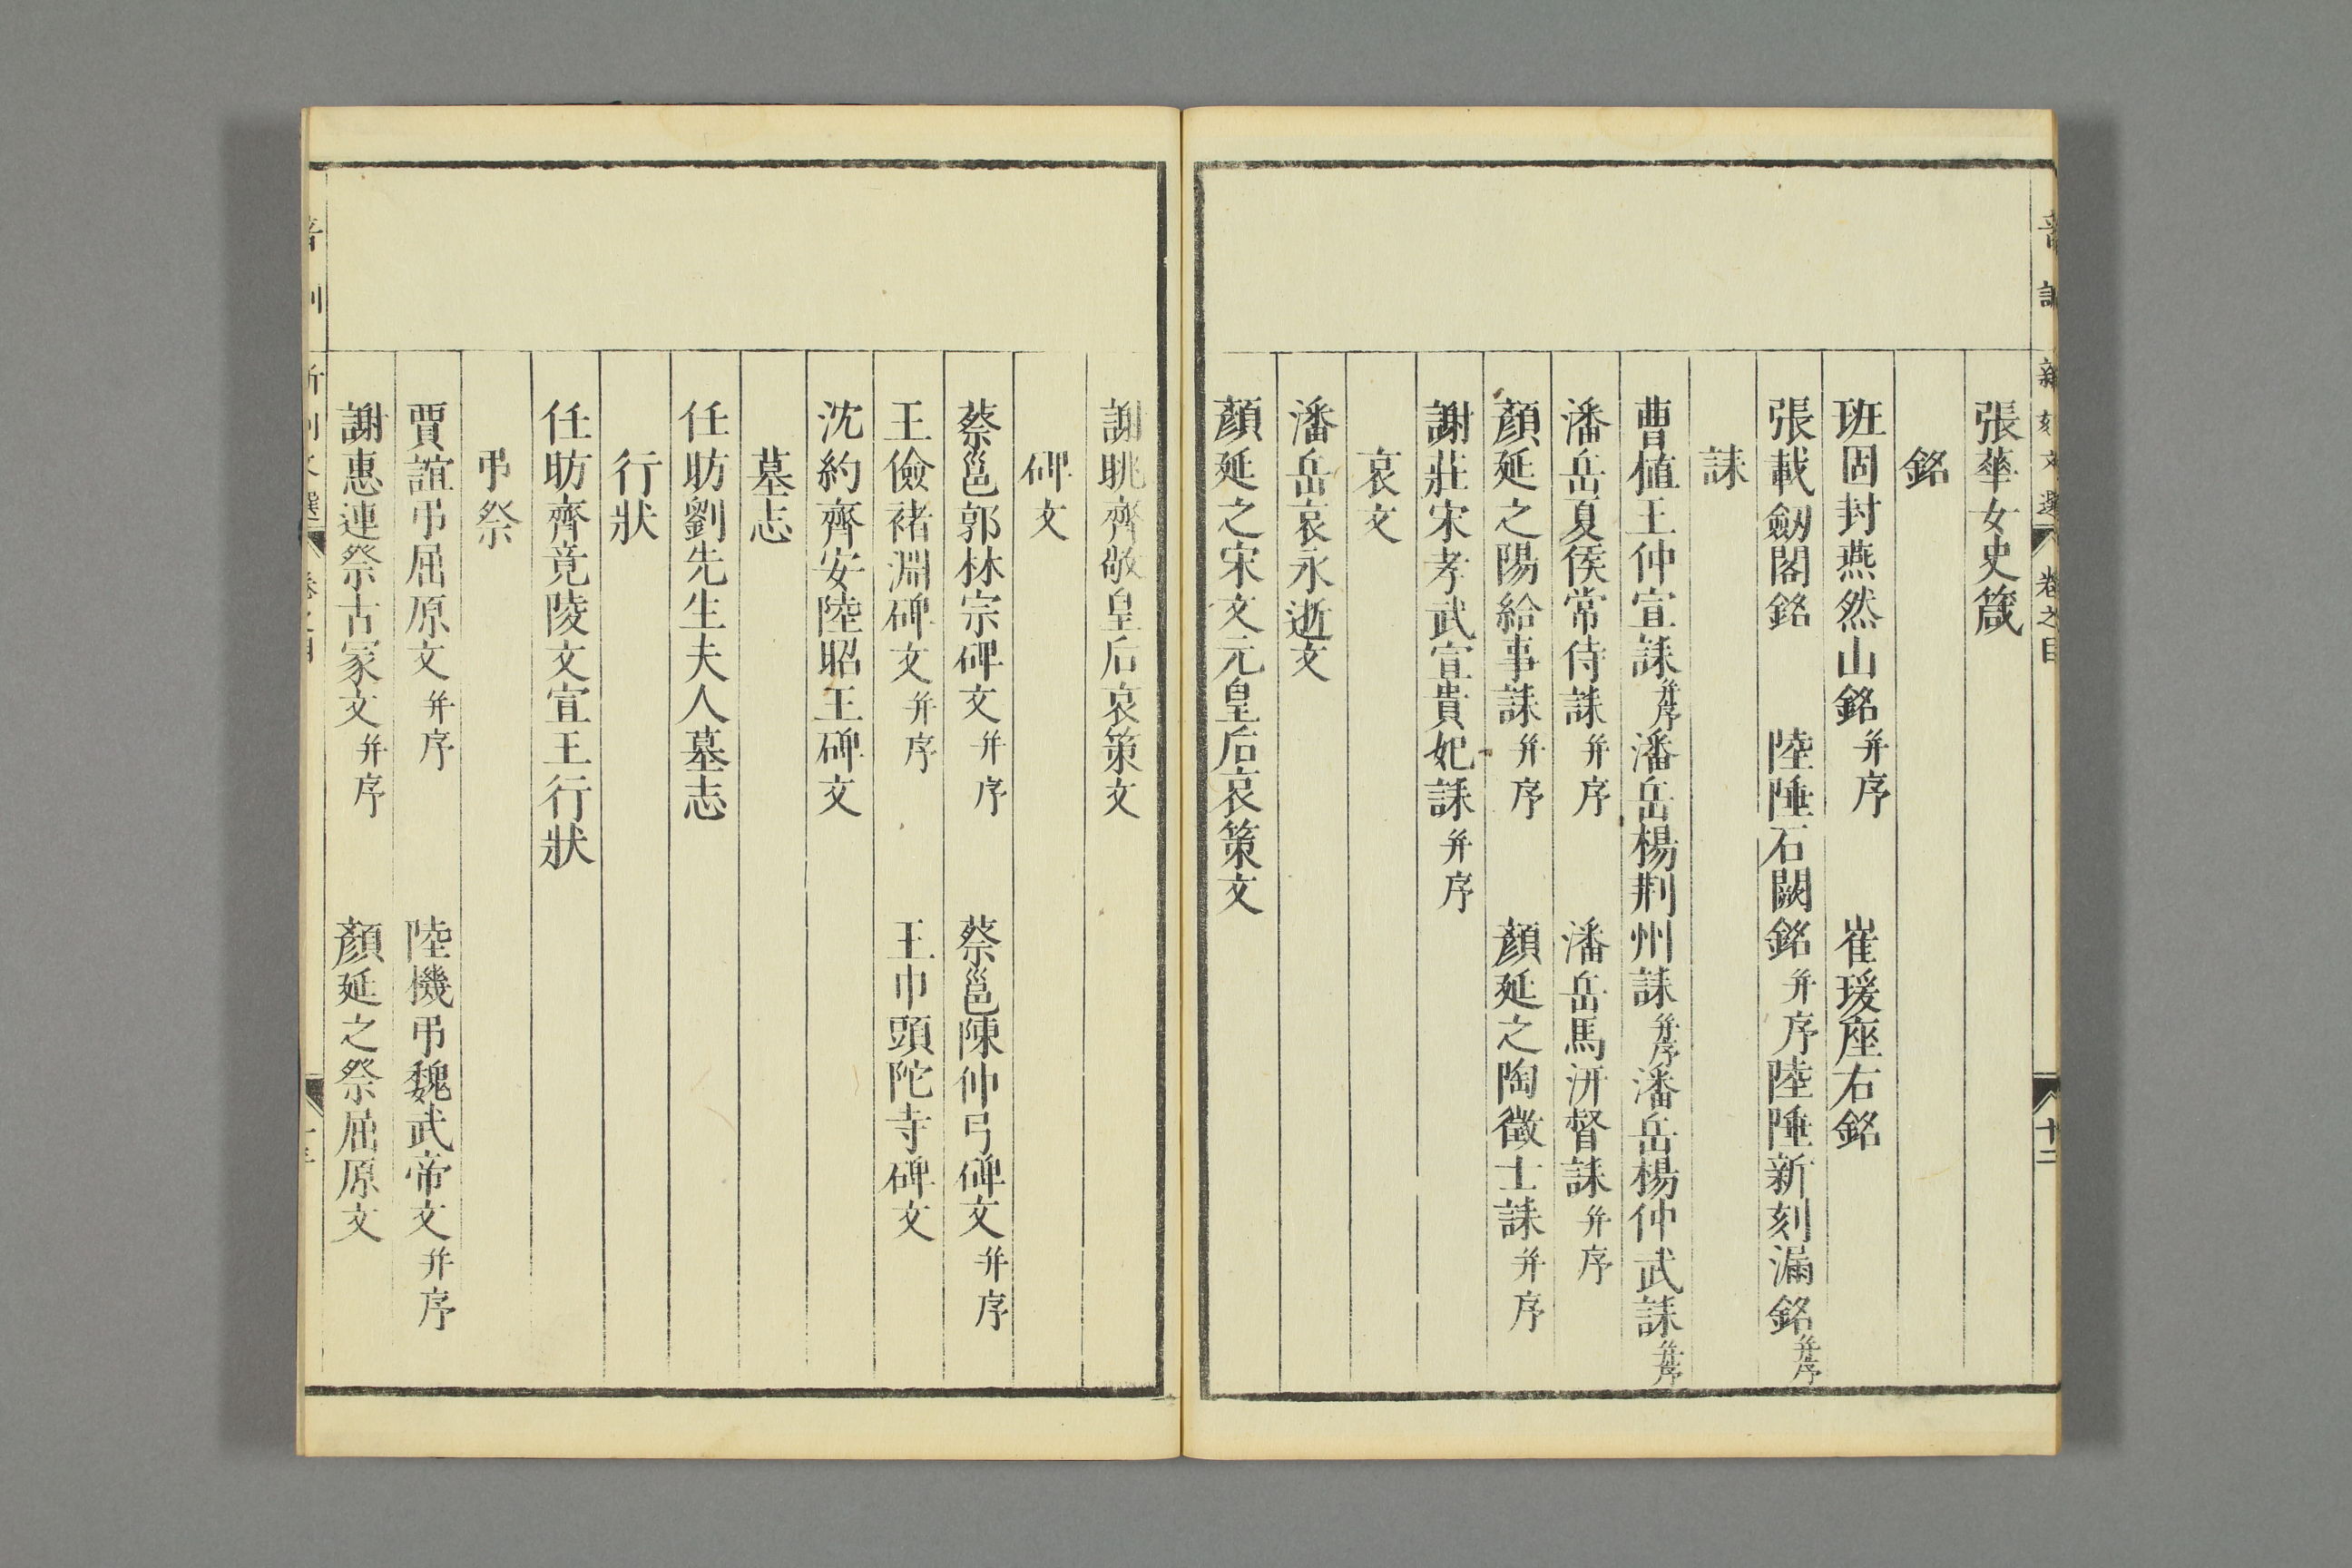 新刻文選 卷之目 十二
張華女史箴
銘
班固封燕然山銘并序 崔瑗座右銘
張載劒閣銘 陸倕石闕銘并序 陸倕新刻漏銘并序
誄
曹植王仲宣誄并序 潘岳楊荆州誄并序 潘岳楊仲武誄并序
潘岳夏侯常侍誄并序 潘岳馬汧督誄并序
顏延之陽給事誄并序 顏延之陶徵士誄并序
謝莊宋孝武宣貴妃誄并序
哀文
潘岳哀永逝文
顏延之宋文元皇后哀策文
謝眺齊敬皇后哀策文
碑文
蔡邕郭林宗碑文并序 蔡邕陳仲弓碑文并序
王儉褚淵碑文并序 王巾頭陀寺碑文
沈約齊安陸昭王碑文
墓志
任昉劉先生夫人墓志
行狀
任昉齊竟陵文宣王行狀
弔祭
賈誼弔屈原文并序 陸機弔魏武帝文并序
謝惠連祭古冢文并序 顏延之祭屈原文